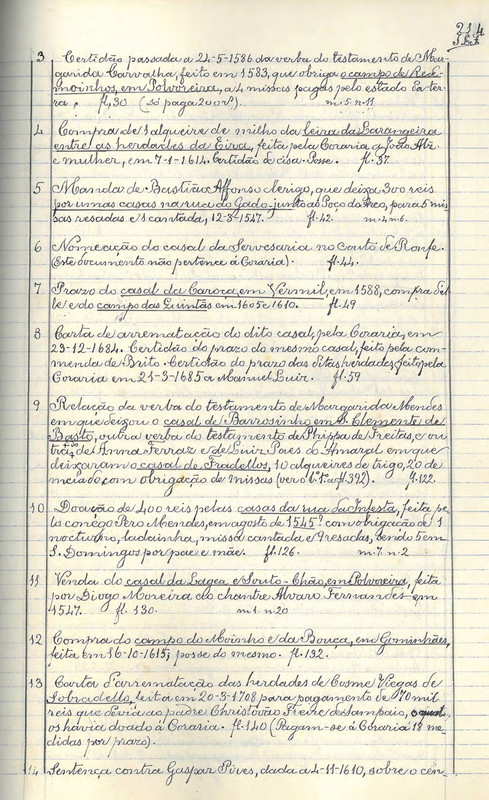 214
3 Certidão passada a 24-5-1586 da verba do testamento de Mar-
garida Carvalha, feito em 1583, que obriga o campo de Rede-
moinhos, em Polvoreira, a 4 missas pagas pelo estado da ter-
ra. fl. 30 (só paga 200 rs). m. 5 n. 11
4 Compra de 1 alqueire de milho da leira da Larangeira
entre as herdades da Eira, feita pela Coraria a João Alz.
e mulher, em 7-1-1614. Certidão de cisa. Posse. fl. 37.
5 Manda de Bastião Affonso clerigo, que deixa 300 reis
por umas casas na rua do Gado-junto ao Poço do Pico, para 5 mis-
sas resadas e 1 cantada, 12-3-1547. fl. 42. m. 4 n. 6.
6 Nomeação do casal da Servosaria no couto de Ronfe.
(Este documento não pertence á Coraria). fl. 44.
7 Prazo do casal da Caroca em Vermil, em 1588, compra del-
le e do campo das Quintãs em 1605 e 1610. fl. 49
8 Carta de arrematação do dito casal, pela Coraria, em
23-12-1684. Certidão do prazo do mesmo casal, feito pela com-
menda de Brito. Certidão do prazo das ditas herdades, feito pela
Coraria em 21-3-1685 a Manuel Luiz. fl. 59
9 Relação da verba do testamento de Margarida Mendes
em que deixou o casal de Barrosinho em S. Clemente de
Basto, outra verba do testamento de Phippa de Freitas, e ou-
tras, de Anna Ferraz e de Luiz Paes do Amaral em que
deixaram o casal de Fradellos, 10 alqueires de trigo, 20 de
meiado com obrigação de missas (vero l. 1.º a fl. 392). fl. 122.
10 Doação de 400 reis pelas casas da rua da Infesta, feita pe-
lo conego Pero Mendes, em agosto de 1545? com obrigação de 1
nocturno, ladainha, missa cantada e 9 resadas, sendo 5 em
S. Domingos por pae e mãe. fl. 126. m. 7 n. 2
11 Venda do casal da Lagea e Souto-Chão, em Polvoreira, feita
por Diogo Moreira do chantre Alvaro Fernandes em
1547. fl. 130. m. 1 n. 20
12 Compra do campo do Moinho e da Bouça, em Gominhães,
feita em 16-10-1615; posse do mesmo. fl. 132.
13 Carta d'arrematação das herdades de Cosme Viegas de
Sobradello, feita em 20-3-1708 para pagamento de 70 mil
reis que devia ao padre Christovão Freire de Sampaio, o qual
os havia doado á Coraria. fl. 140 (Pagam-se á Coraria 18 me-
didas por prazo).
14 Sentença contra Gaspar Pires, dada a 4-11-1610, sobre o cen-